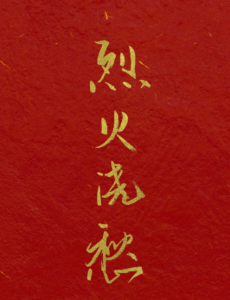 烈火浇愁